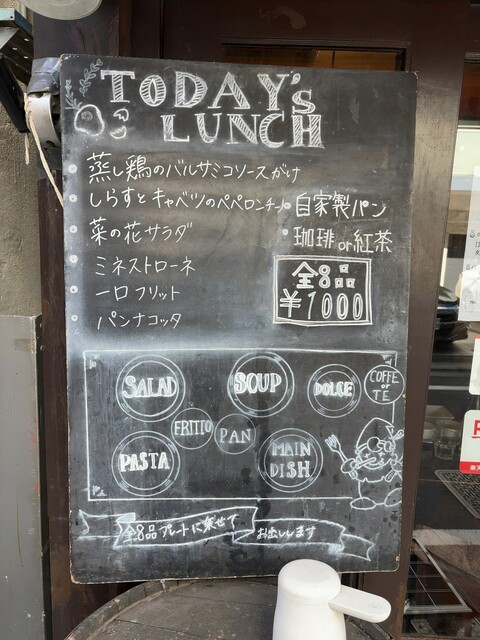 TODAY's
LUNCH
蒸し鶏のバルサミコソースがけ
しらすとキャベツのペペロンチーノ
菜の花サラダ
ミネストローネ
一口フリット
パンナコッタ
自家製パン
珈琲or紅茶
全8品
¥1000
SALAD
SOUP
DOLCE
COFFE
or
TE
FRITTO
PAN
PASTA
MAIN
DISH
全8品プレートに乗せて
お出しします